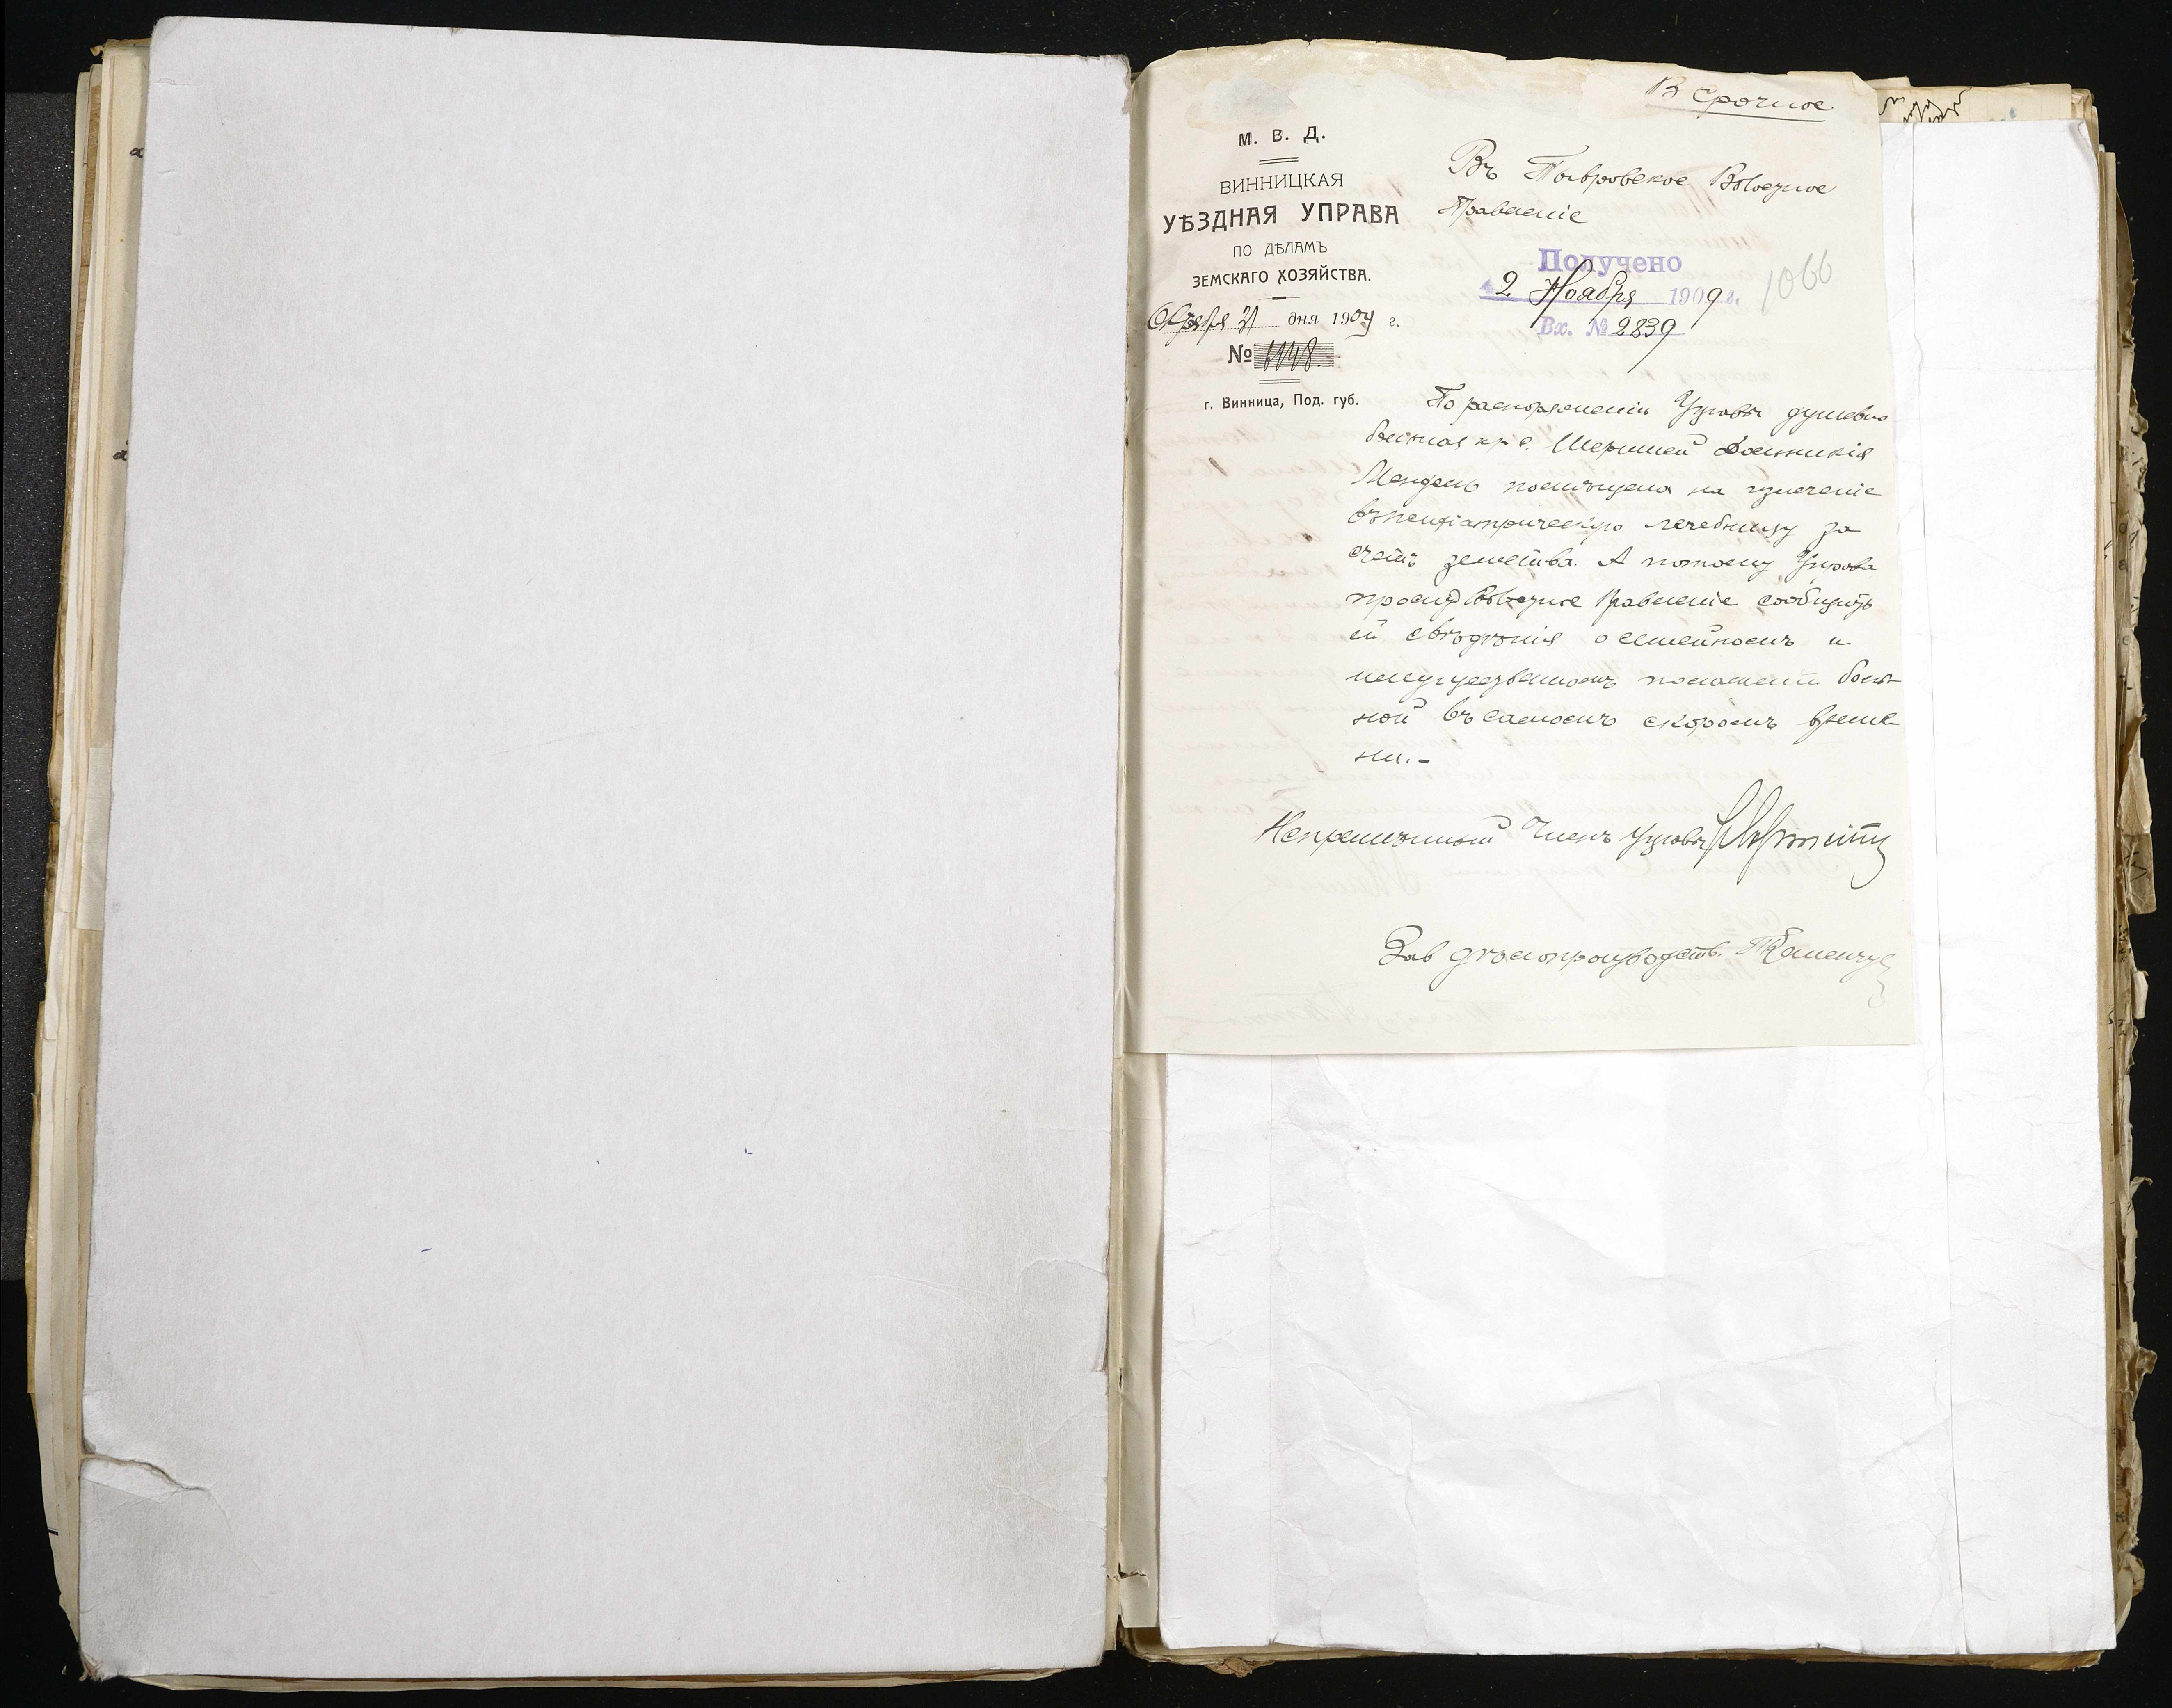 В Срочное
М. В. Д.
ВИННИЦКАЯ
УѢЗДНАЯ УПРАВА
ПО ДѢЛАМЪ
ЗЕМСКАГО ХОЗЯЙСТВА.
Октября 31 дня 1909 г.
№ 6148
г. Винница, Под. губ.
Въ Тывровское Волостное
Правленіе
Получено
2 Ноября 1909 г.
Вх. № 2839
1066
По распоряженію Управы душевно
больная кр. с. Шершней
помѣщена на излеченіе
въ психіатрическую лечебницу за
счетъ земства. А потому Управа
проситъ Волостное Правленіе сообщить
ей свѣдѣнія о семейномъ и
имущественномъ положеніи боль-
ной въ самомъ скоромъ време-
ни.-
Непремѣнный Членъ Управы
Зав дѣлопроизводств.